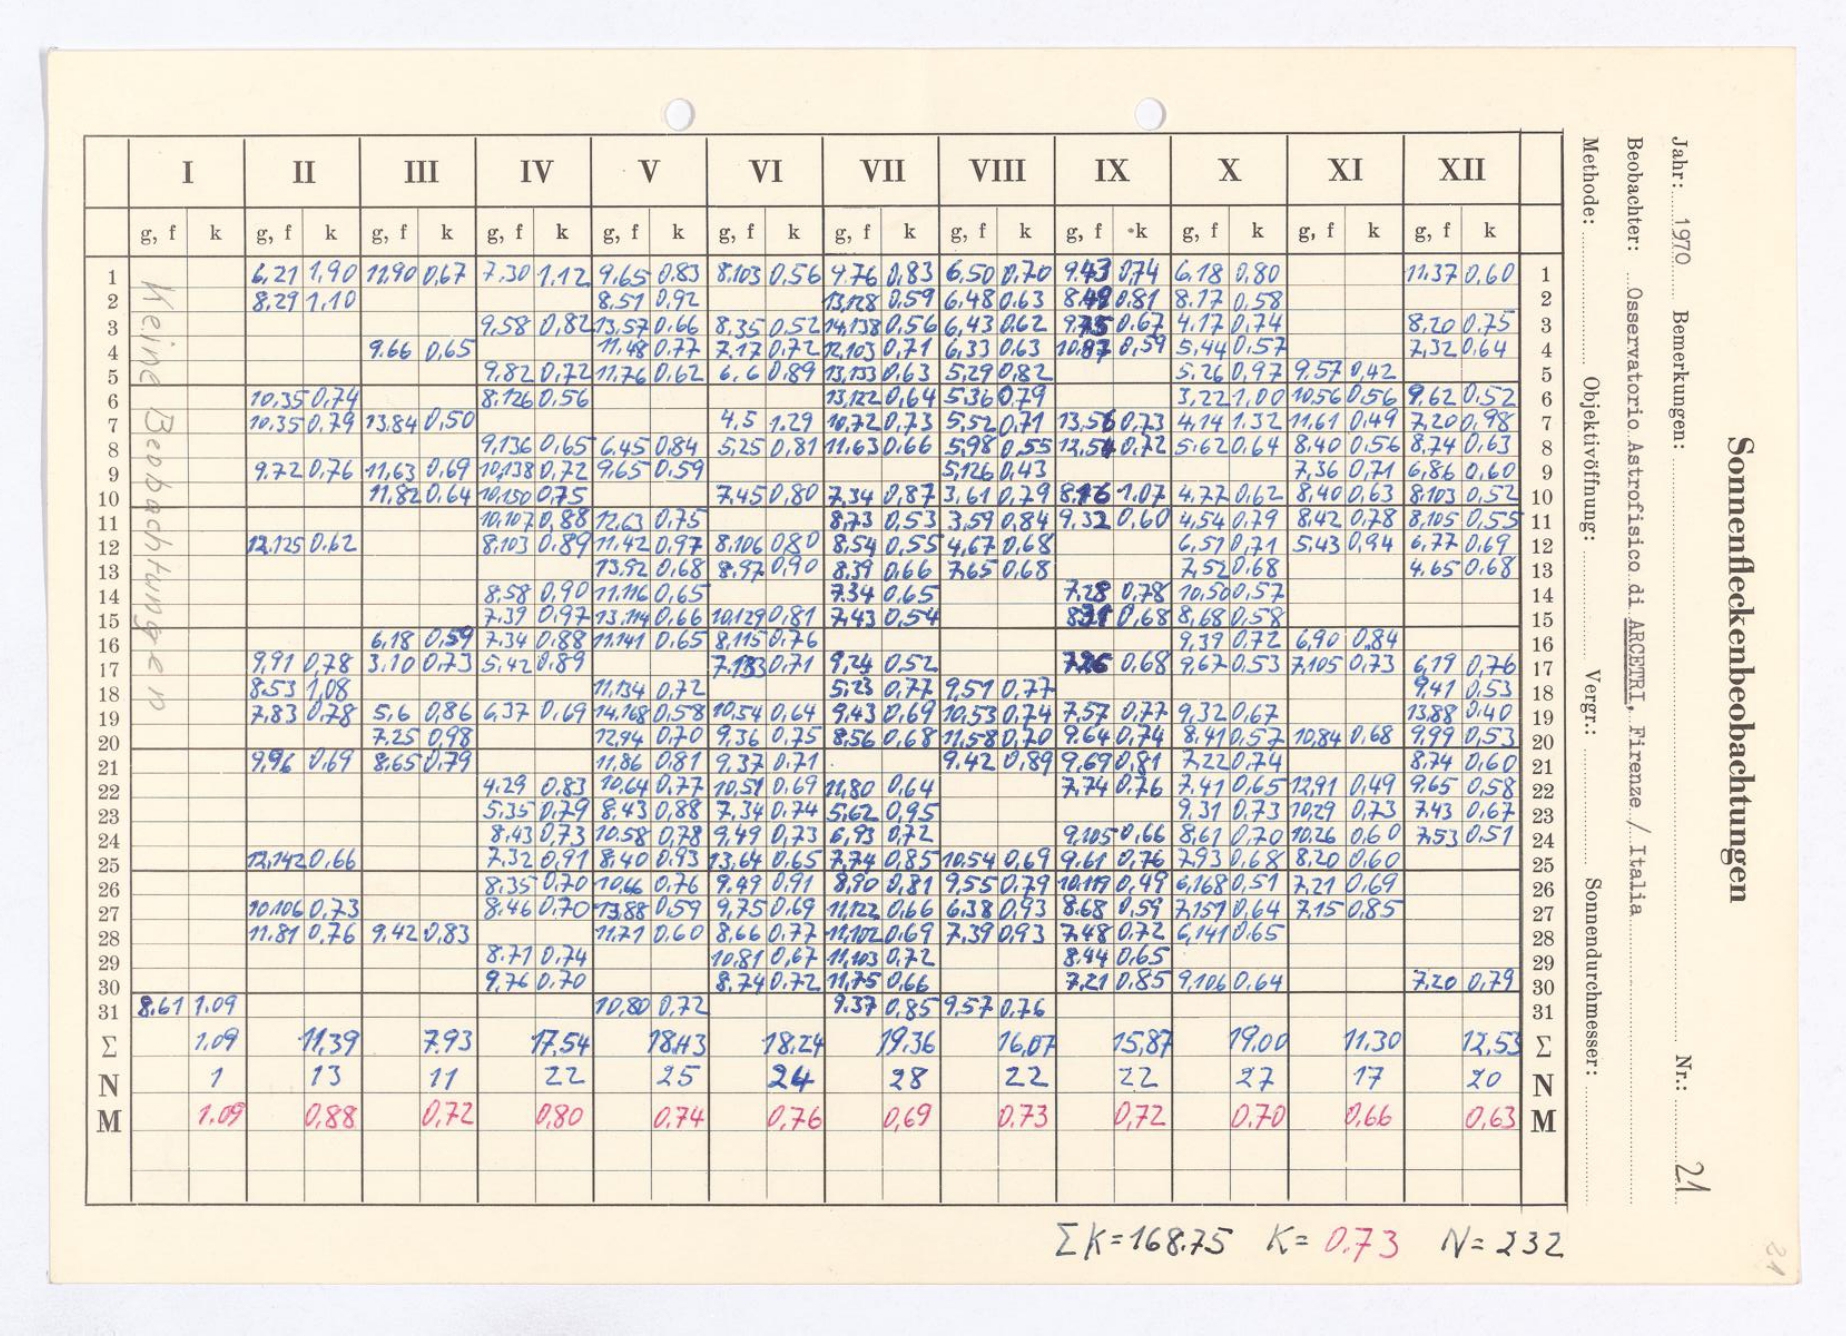 Sonnenfleckenbeobachtungen
Jahr: 1970 Bemerkungen: Nr.: 21
Beobachter: Osservatorio Astrofisico di ARCETRI, Firenze / Italia
Methode: Objektivöffnung: Vergr.: Sonnendurchmesser:
I II III IV V VI VII VIII IX X XI XII
g, f k g, f k g, f k g, f k g, f k g, f k g, f k g, f k g, f k g, f k g, f k g, f k
Keine Beobachtungen
1 6,21 1,90 11,90 0,67 7,30 1,12 9,65 0,83 8,103 0,56 9,76 0,83 6,50 0,70 9,43 0,74 6,18 0,80 11,37 0,60 1
2 8,29 1,10 8,51 0,92 13,128 0,59 6,48 0,63 0,81 8,17 0,58 2
3 9,58 0,82 13,57 0,66 8,35 0,52 14,138 0,56 6,43 0,62 0,67 4,17 0,74 8,20 0,75 3
4 9,66 0,65 11,48 0,77 7,17 0,72 12,103 0,71 6,33 0,63 10,87 0,59 5,44 0,57 7,32 0,64 4
5 9,82 0,72 11,76 0,62 6,6 0,89 13,133 0,63 5,29 0,82 5,26 0,97 9,57 0,42 5
6 10,35 0,74 8,126 0,56 13,122 0,64 5,36 0,79 3,22 1,00 10,56 0,56 9,62 0,52 6
7 10,35 0,79 13,84 0,50 4,5 1,29 10,72 0,73 5,52 0,71 13,56 0,73 4,14 1,32 11,61 0,49 7,20 0,98 7
8 9,136 0,65 6,45 0,84 5,25 0,81 11,63 0,66 5,98 0,55 12,54 0,72 5,62 0,64 8,40 0,56 8,74 0,63 8
9 9,72 0,76 11,63 0,69 10,138 0,72 9,65 0,59 5,126 0,43 7,36 0,71 6,86 0,60 9
10 11,82 0,64 10,150 0,75 7,45 0,80 7,34 0,87 3,61 0,79 1,07 4,77 0,62 8,40 0,63 8,103 0,52 10
11 10,107 0,88 12,63 0,75 8,73 0,53 3,59 0,84 9,32 0,60 4,54 0,79 8,42 0,78 8,105 0,55 11
12 12,125 0,62 8,103 0,89 11,42 0,97 8,106 0,80 8,54 0,55 4,67 0,68 6,57 0,71 5,43 0,94 6,77 0,69 12
13 13,92 0,68 8,97 0,90 8,39 0,66 7,65 0,68 7,52 0,68 4,65 0,68 13
14 8,58 0,90 11,116 0,65 7,34 0,65 7,28 0,78 10,50 0,57 14
15 7,39 0,97 13,114 0,66 10,129 0,81 7,43 0,54 0,68 8,68 0,58 15
16 6,18 0,59 7,34 0,88 11,141 0,65 8,115 0,76 9,39 0,72 6,90 0,84 16
17 9,91 0,78 3,10 0,73 5,42 0,89 7,133 0,71 9,24 0,52 7,26 0,68 9,67 0,53 7,105 0,73 6,19 0,76 17
18 8,53 1,08 11,134 0,72 5,23 0,77 9,51 0,77 9,41 0,53 18
19 7,83 0,78 5,6 0,86 6,37 0,69 14,168 0,58 10,54 0,64 9,43 0,69 10,53 0,74 7,57 0,77 9,32 0,67 13,88 0,40 19
20 7,25 0,98 12,94 0,70 9,36 0,75 8,56 0,68 11,58 0,70 9,64 0,74 8,41 0,57 10,84 0,68 9,99 0,53 20
21 9,96 0,69 8,65 0,79 11,86 0,81 9,37 0,71 9,42 0,89 9,69 0,81 7,22 0,74 8,74 0,60 21
22 4,29 0,83 10,64 0,77 10,51 0,69 11,80 0,64 7,74 0,76 7,41 0,65 12,91 0,49 9,65 0,58 22
23 5,35 0,79 8,43 0,88 7,34 0,74 5,62 0,95 9,31 0,73 10,29 0,73 7,43 0,67 23
24 8,43 0,73 10,58 0,78 9,49 0,73 6,93 0,72 9,105 0,66 8,61 0,70 10,26 0,60 7,53 0,51 24
25 12,142 0,66 7,32 0,91 8,40 0,93 13,64 0,65 7,74 0,85 10,54 0,69 9,61 0,76 7,93 0,68 8,20 0,60 25
26 8,35 0,70 10,66 0,76 9,49 0,91 8,90 0,81 9,55 0,79 10,119 0,49 6,168 0,51 7,21 0,69 26
27 10,106 0,73 8,46 0,70 13,88 0,59 9,75 0,69 11,122 0,66 6,38 0,93 8,68 0,59 7,157 0,64 7,15 0,85 27
28 11,81 0,76 9,42 0,83 11,71 0,60 8,66 0,77 11,102 0,69 7,39 0,93 7,48 0,72 6,141 0,65 28
29 8,71 0,74 10,81 0,67 11,103 0,72 8,44 0,65 29
30 9,76 0,70 8,74 0,72 11,75 0,66 7,21 0,85 9,106 0,64 7,20 0,79 30
31 8,61 1,09 10,80 0,72 9,37 0,85 9,57 0,76 31
Σ 1,09 11,39 7,93 17,54 18,43 18,24 19,36 16,07 15,87 19,00 11,30 12,53 Σ
N 1 13 11 22 25 24 28 22 22 27 17 20 N
M 1,09 0,88 0,72 0,80 0,74 0,76 0,69 0,73 0,72 0,70 0,66 0,63 M
Σk=168,75 K=0,73 N=232
21